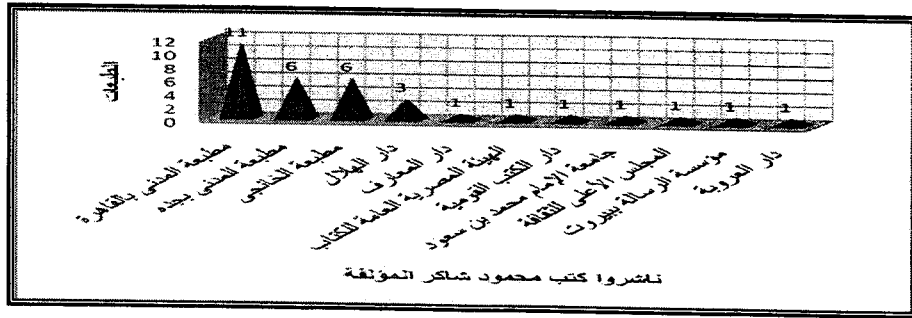 11
12
10
8
6
4
2
0
6
6
3
1
1
1
1
1
1
1
الطبعات
مطبعة المدنى بالقاهرة
مطبعة المدنى بجده
مطبعة الخانجى
دار الهلال
دار المعارف
الهيئة المصرية العامة للكتاب
دار الكتب القومية
جامعة الإمام محمد بن سعود
المجلس الأعلى للثقافة
مؤسسة الرسالة ببيروت
دار العروبة
ناشروا كتب محمود شاكر المؤلفة